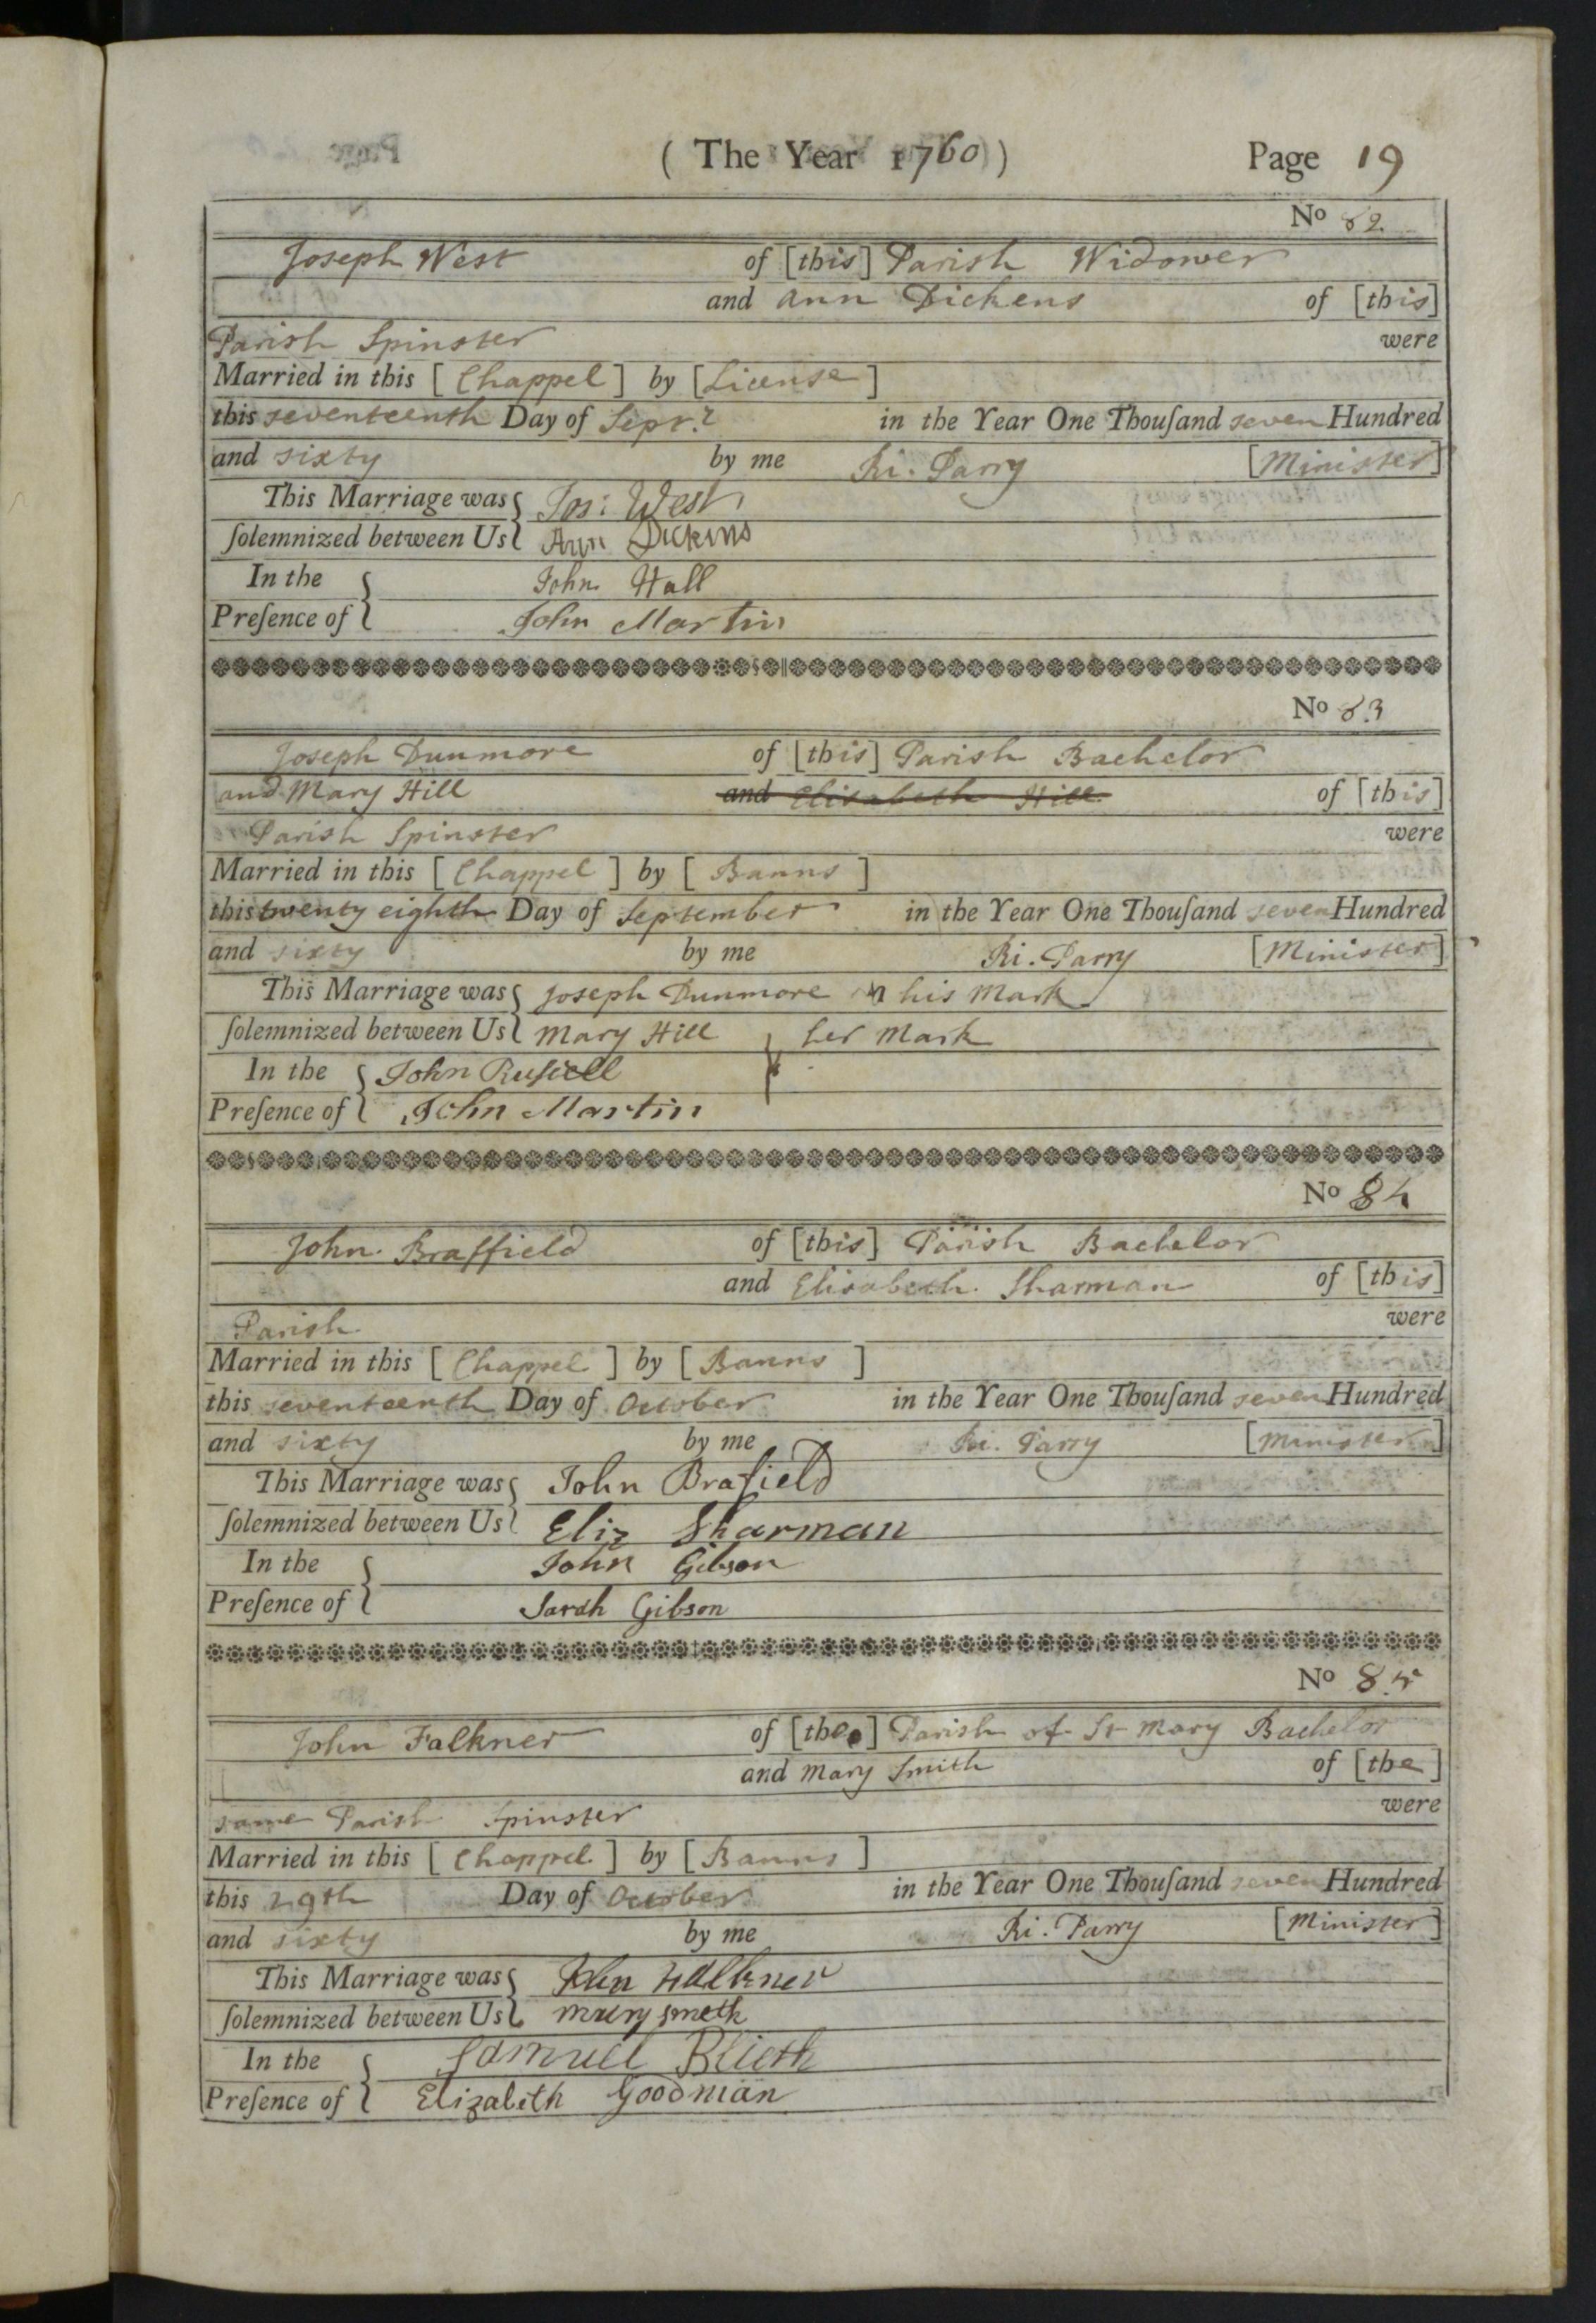 ( The Year 1760 ) Page 19
No 82
Joseph West of [this] Parish Widower
and Ann Dickens of [this]
Parish Spinster were
Married in this [ Chappel ] by [ License ]
this seventeenth Day of Sepr. in the Year One Thouſand seven Hundred
and sixty by me Ri. Parry [Minister]
This Marriage was Jos: West
ſolemnized between Us Ann Dickins
In the John Hall
Preſence of John Martin
No 83
Joseph Dunmore of [this] Parish Bachelor
and Mary Hill and Elisabeth Hill of [this]
Parish Spinster were
Married in this [ Chappel ] by [ Banns ]
this twenty eighth Day of September in the Year One Thouſand seven Hundred
and sixty by me Ri. Parry [Minister]
This Marriage was Joseph Dunmore his Mark
ſolemnized between Us Mary Hill her Mark
In the John Ruſsell
Preſence of John Martin
No 84
John Braffield of [this] Parish Bachelor
and Elisabeth Sharman of [this]
Parish were
Married in this [ Chappel ] by [ Banns ]
this seventeenth Day of October in the Year One Thouſand seven Hundred
and sixty by me Ri. Parry [Minister]
This Marriage was John Brafield
ſolemnized between Us Eliz Sharman
In the John Gibson
Preſence of Sarah Gibson
No 85
John Falkner of [the] Parish of St Mary Bachelor
and Mary Smith of [the]
same Parish Spinster were
Married in this [ Chappel ] by [ Banns ]
this 29th Day of October in the Year One Thouſand seven Hundred
and sixty by me Ri. Parry [Minister]
This Marriage was John
ſolemnized between Us mary smeth
In the Samuell
Preſence of Elizabeth Goodman